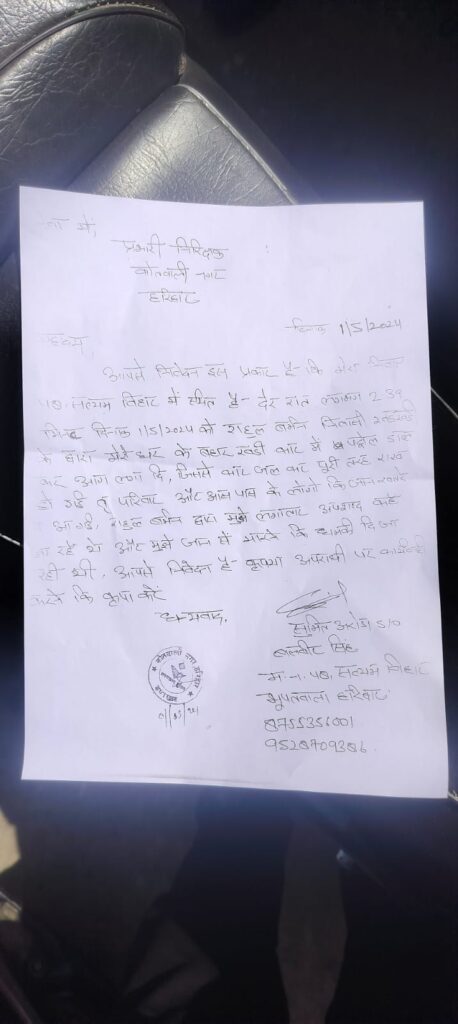 सेवा में,
प्रभारी निरिक्षक
कोतवाली नगर
हरिद्वार
दिनांक 1/5/2024
महोदय,
आपसे निवेदन इस प्रकार है- कि मेरा निवास
सत्यम विहार में स्थित है- देर रात लगभग 2-39
मिनट दिनांक 1/5/2024 को राहुल बर्मन निवासी
के द्वारा मेरे घर के बहार खडी कार में पेट्रोल डाल
कर आग लगा दि, जिससे कार जल कर पूरी तरह राख
हो गई व परिवार और आस पास के लोगो कि जान खतरे
आ गई, राहुल बर्मन द्वारा मुझे लगातार अपशब्द कहे
जा रहे थे और मुझे जान से मारने कि धमकी दि जा
रही थी, आपसे निवेदन है- कृपया अपराधी पर कार्यवाही
करने कि कृपा करें
धन्यवाद,
सुमित अरोडा S/O
बलबीर सिंह
म.न. सत्यम विहार
भूपतवाला हरिद्वार
8755356001
9528709386
कोतवाली नगर हरिद्वार